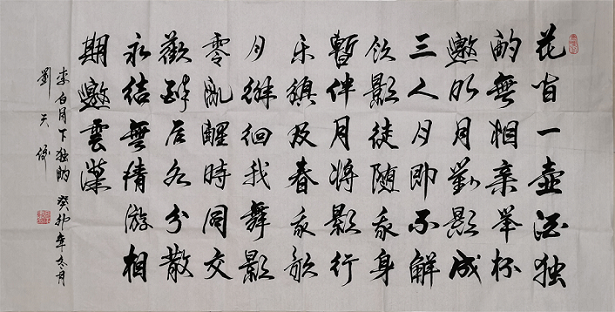 花間一壶酒独
酌無相亲举杯
邀明月對影成
三人月即不解
饮影徒随我身
暫伴月将影行
乐須及春我歌
月徘徊我舞影
零亂醒時同交
歡醉后各分散
永结無情游相
期邀雲漢
李白月下独酌 癸卯年冬月
劉天